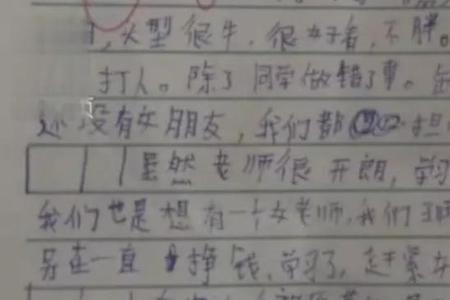 ，火型很牛，很好看，不胖。
打人。除了同学做错了事。
还没有女朋友，我们都担
虽然老师很开朗，学习
我们也是想有一个女老师，我们
别在一直挣钱、学习了，赶紧